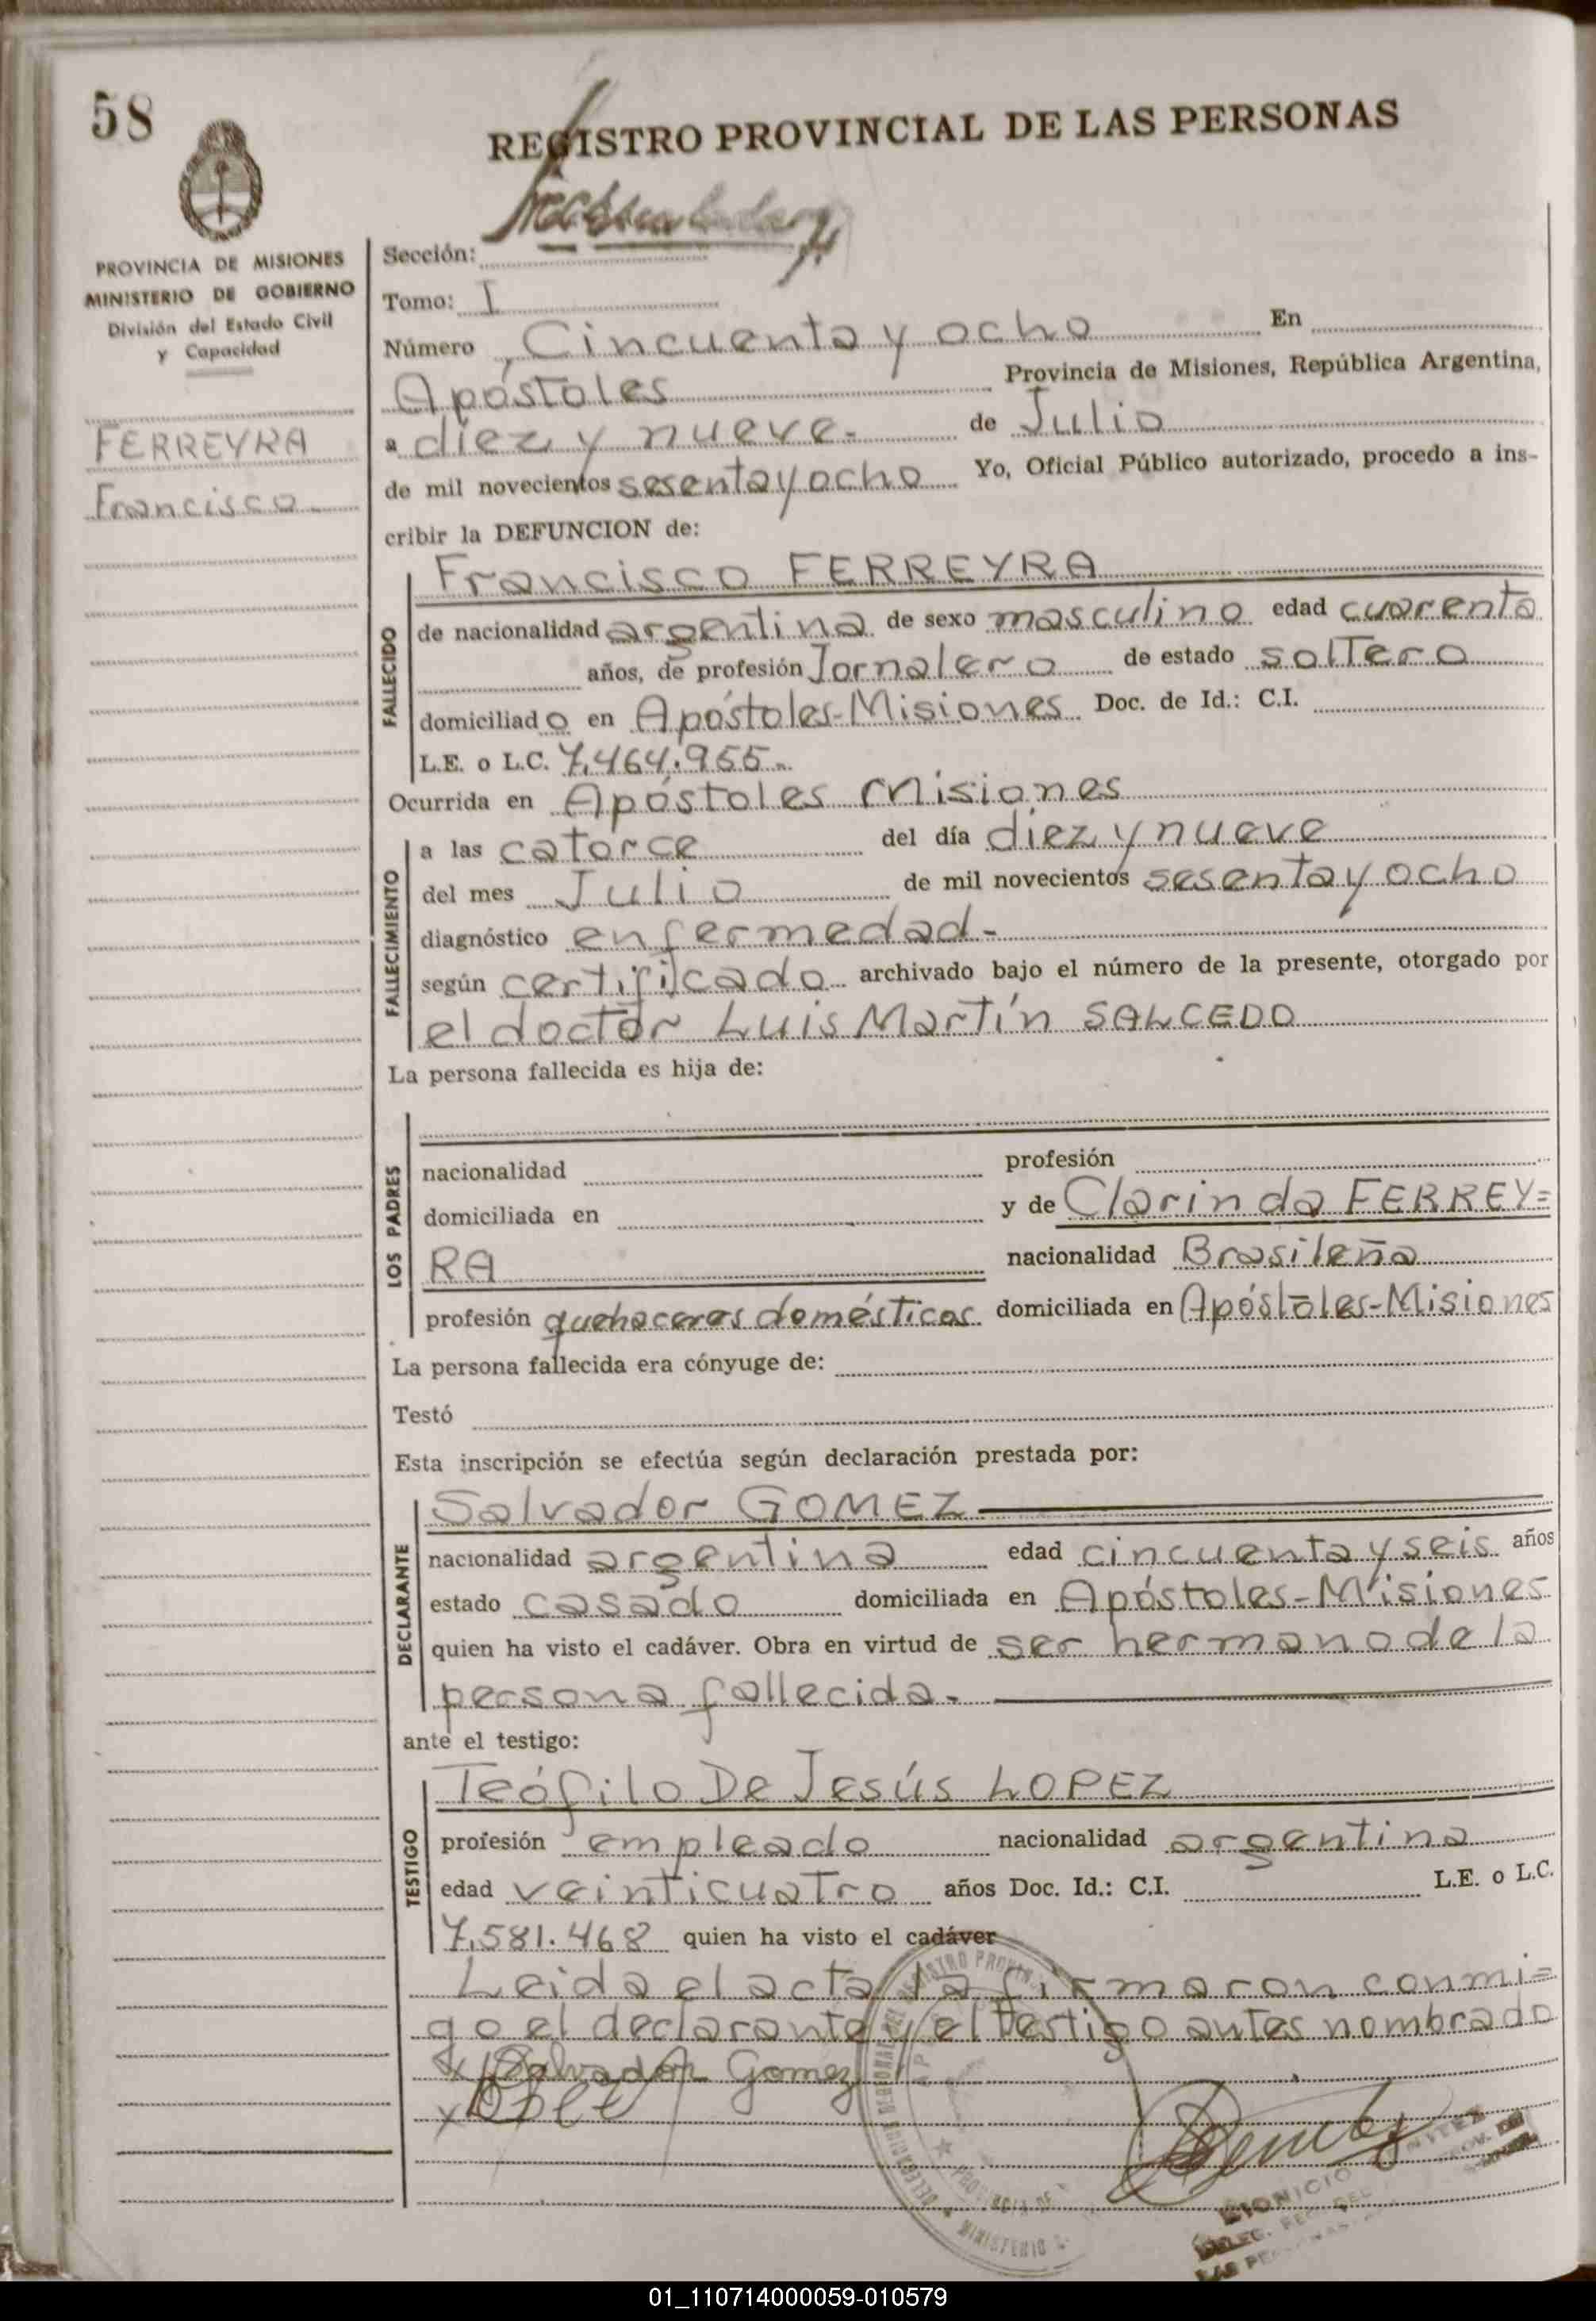 58
REGISTRO PROVINCIAL DE LAS PERSONAS
PROVINCIA DE MISIONES
MINISTERIO DE GOBIERNO
División del Estado Civil
y Capacidad
FERREYRA
Francisco.
Sección:
Tomo: I
Número Cincuenta y ocho En
Apóstoles Provincia de Misiones, República Argentina,
a diez y nueve.- de Julio
de mil novecientos sesenta y ocho Yo, Oficial Público autorizado, procedo a ins-
cribir la DEFUNCION de:
FALLECIDO
Francisco FERREYRA
de nacionalidad argentina de sexo masculino edad cuarenta
años, de profesión Jornalero de estado soltero
domiciliado en Apóstoles-Misiones Doc. de Id.: C.I.
L.E. o L.C. 7.464.955.-
Ocurrida en Apóstoles Misiones
FALLECIMIENTO
a las catorce del día diez y nueve
del mes Julio de mil novecientos sesenta y ocho
diagnóstico enfermedad.-
según certificado archivado bajo el número de la presente, otorgado por
el doctor Luis Martín SALCEDO
La persona fallecida es hija de:
LOS PADRES
nacionalidad profesión
domiciliada en y de Clarinda FERREY=
RA nacionalidad Brasileña
profesión quehaceres domésticos domiciliada en Apóstoles-Misiones
La persona fallecida era cónyuge de:
Testó
Esta inscripción se efectúa según declaración prestada por:
DECLARANTE
Salvador GOMEZ
nacionalidad argentina edad cincuenta y seis años
estado casado domiciliada en Apóstoles-Misiones
quien ha visto el cadáver. Obra en virtud de ser hermano de la
persona fallecida.-
ante el testigo:
TESTIGO
Teófilo De Jesús LOPEZ
profesión empleado nacionalidad argentina
edad veinticuatro años Doc. Id.: C.I. L.E. o L.C.
7.581.468 quien ha visto el cadáver
Leida el acta la firmaron conmi=
go el declarante y el testigo antes nombrado
x Salvador Gomez
x
DIONICIO
01_110714000059-010579